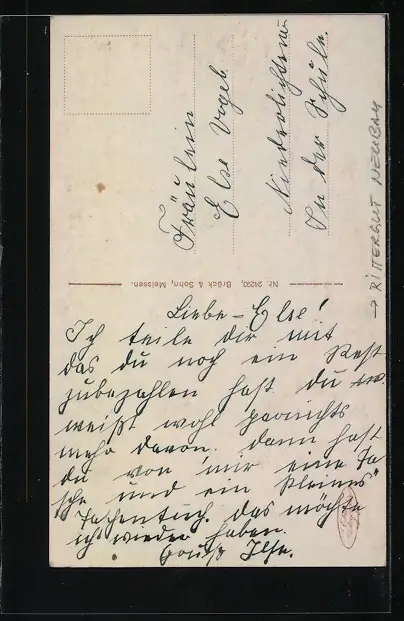 Fräulein
Else Vogel
Niederlichtenau
In der Schule.
Nr. 24293, Brück & Sohn, Meissen.
→ RITTERGUT NEUBAU
Liebe - Else!
Ich teile dir mit
das du noch ein Rest
zubezahlen hast du
weißt wohl garnichts
mehr davon. dann hast
du von mir eine Ta
sche und ein kleines
Taschentuch. das möchte
ich wieder haben.
Gruß Ilse.